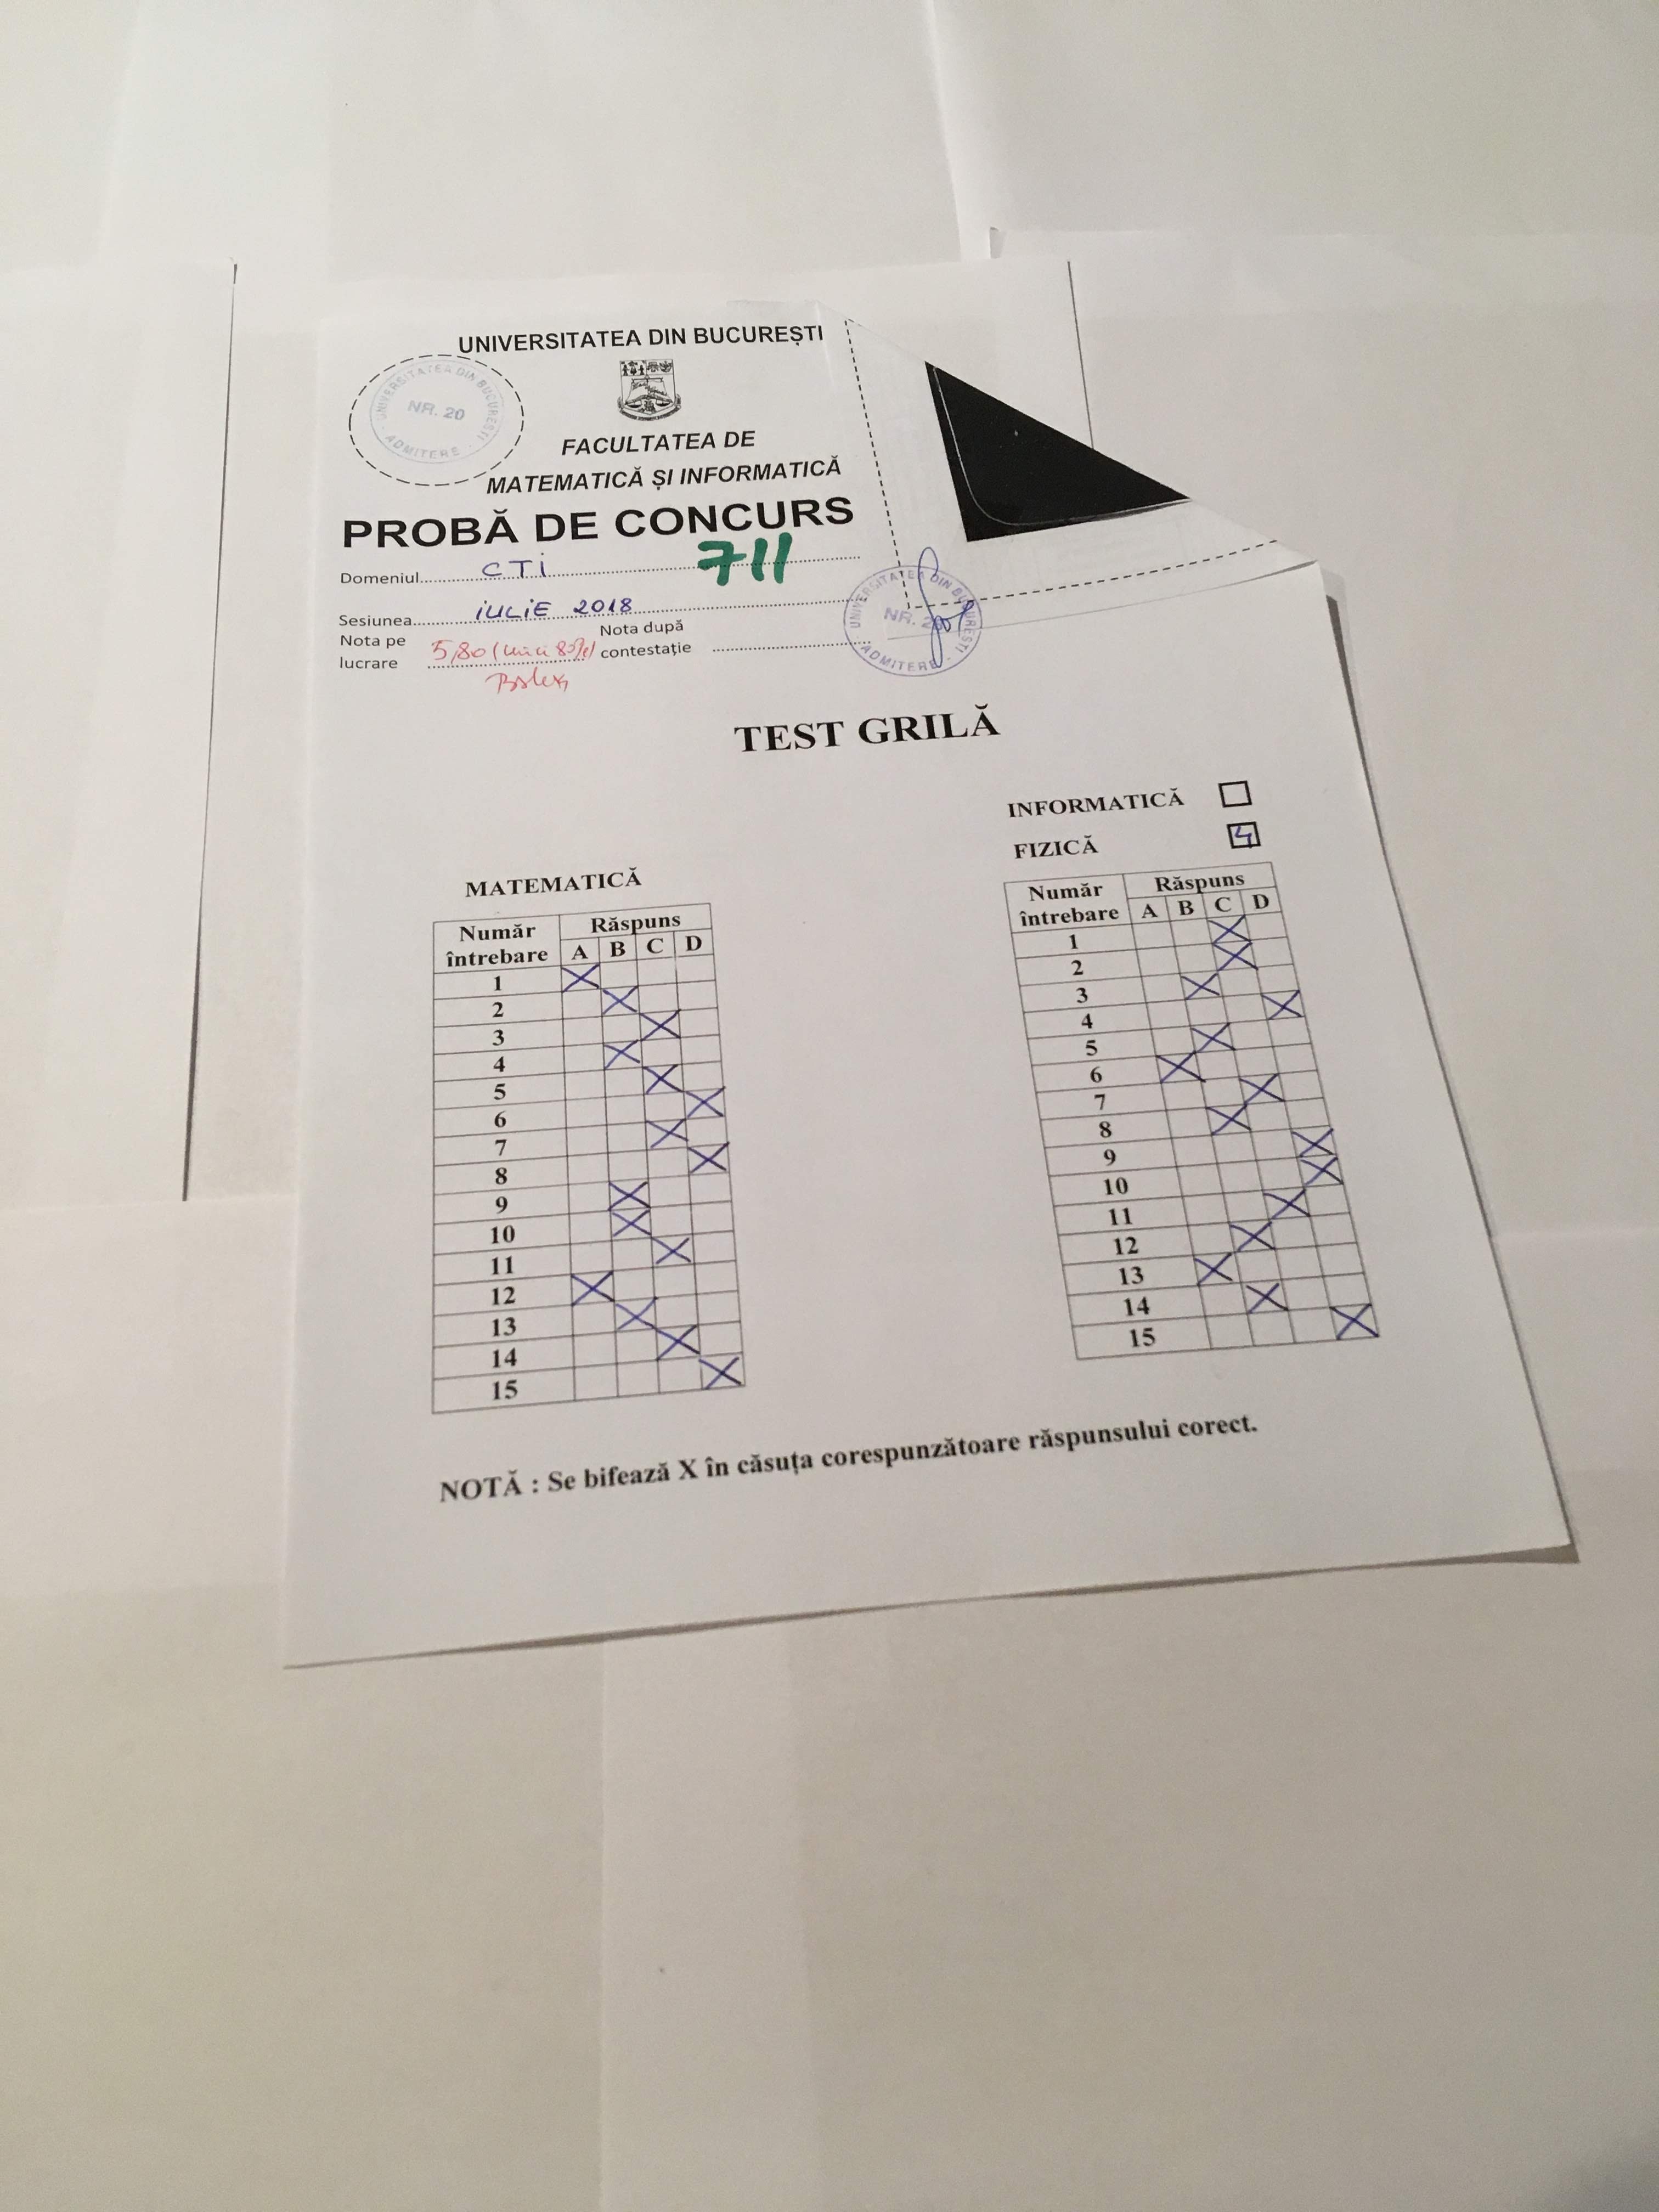 UNIVERSITATEA DIN BUCUREȘTI
UNIVERSITATEA DIN BUCUREȘTI
NR. 20
ADMITERE
FACULTATEA DE
MATEMATICĂ ȘI INFORMATICĂ
PROBĂ DE CONCURS
Domeniul CTI 711
Sesiunea IULIE 2018
Nota pe lucrare 5,80
Nota după contestație
UNIVERSITATEA DIN BUCUREȘTI
NR. 20
ADMITERE
TEST GRILĂ
INFORMATICĂ
FIZICĂ 4
MATEMATICĂ
Număr întrebare Răspuns
A B C D
1 X
2 X
3 X
4 X
5 X
6 X
7 X
8 X
9 X
10 X
11 X
12 X
13 X
14 X
15 X
Număr întrebare Răspuns
A B C D
1 X
2 X
3 X
4 X
5 X
6 X
7 X
8 X
9 X
10 X
11 X
12 X
13 X
14 X
15 X
NOTĂ : Se bifează X în căsuța corespunzătoare răspunsului corect.